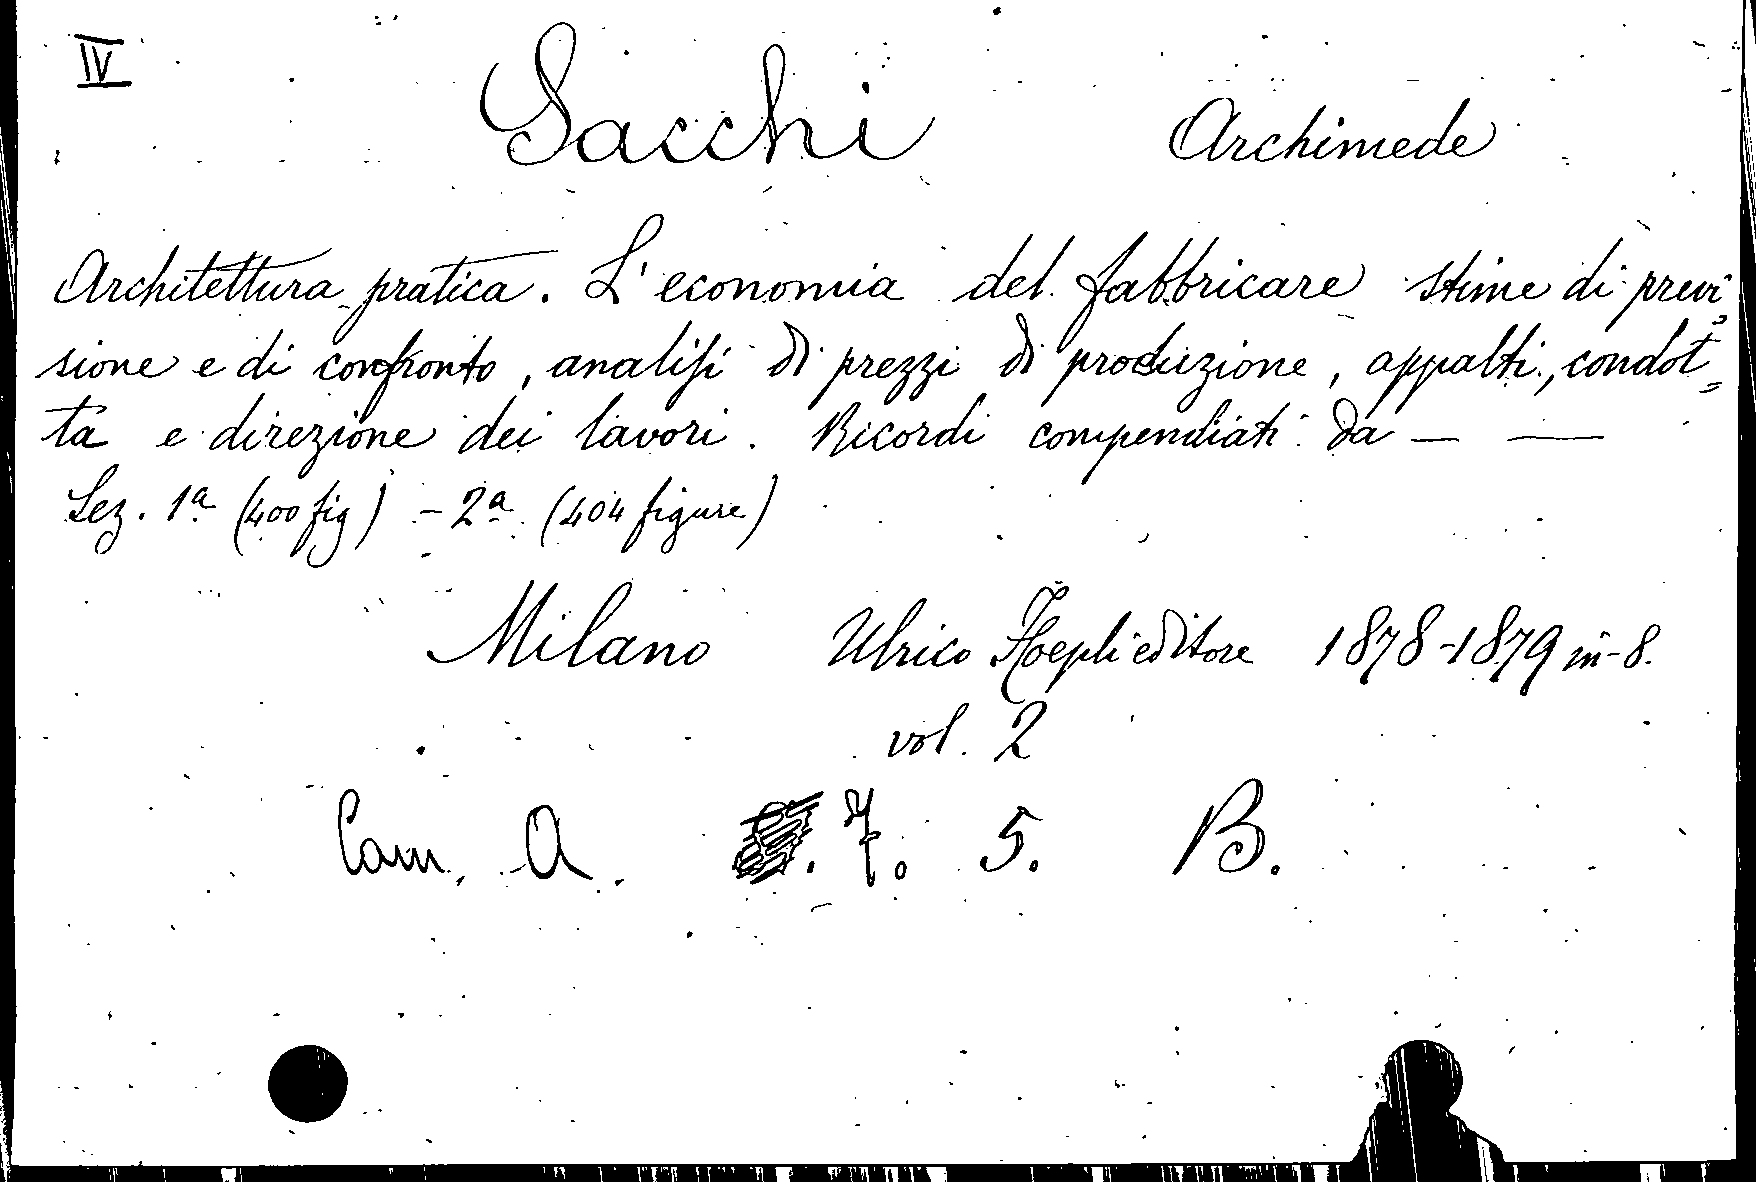 IV
Sacchi Archimede
Architettura pratica. L'economia del fabbricare stime di previ=
sione e di confronto, analisi di prezzi di produzione, appalti, condot=
ta e direzione dei lavori. Ricordi compendiati da — —
Sez. 1ª (400 fig) - 2ª (404 figure)
Milano Ulrico Hoepli editore 1878-1879 in-8.
vol. 2
Cam. A. 7. 5. B.